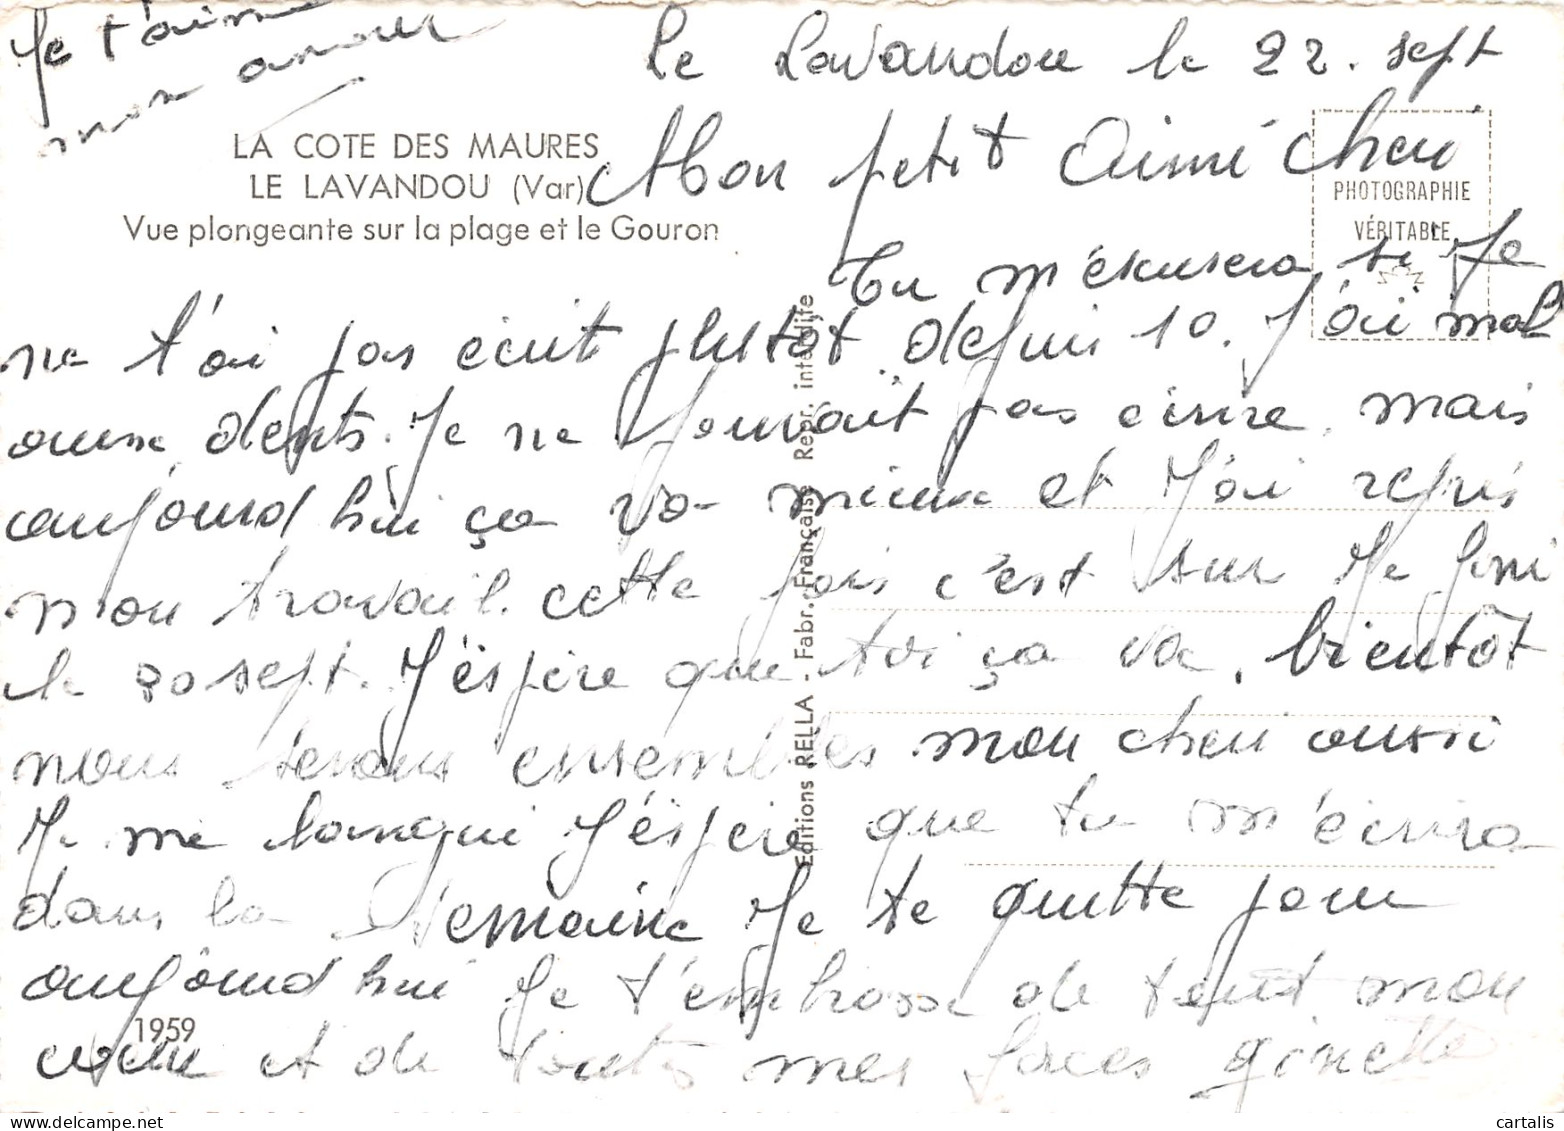 Je t'aime
mon amour
Le Lavandou le 22. sept
LA COTE DES MAURES
LE LAVANDOU (Var)
Vue plongeante sur la plage et le Gouron
PHOTOGRAPHIE
VÉRITABLE
Mon petit Aimé cheri
Tu m'exusera si Je
ne t'ai pas écrit plutôt depuis 10. J'ai mal
aux dents. Je ne pouvait pas écrire, mais
aujourd hui ça va mieux et J'ai repris
mon travail. cette fois c'est sur Je fini
le 30 sept. J'éspère que toi ça va. bientôt
nous serons ensembles mon cheri aussi
Je me langui J'éspère que tu m'écrira
dans la semaine Je te quitte pour
aujourd hui Je t'embrasse de tout mon
cœur et de toutes mes forces ginette
Editions RELLA - Fabr. Française Repr. interdite
1959
cartalis